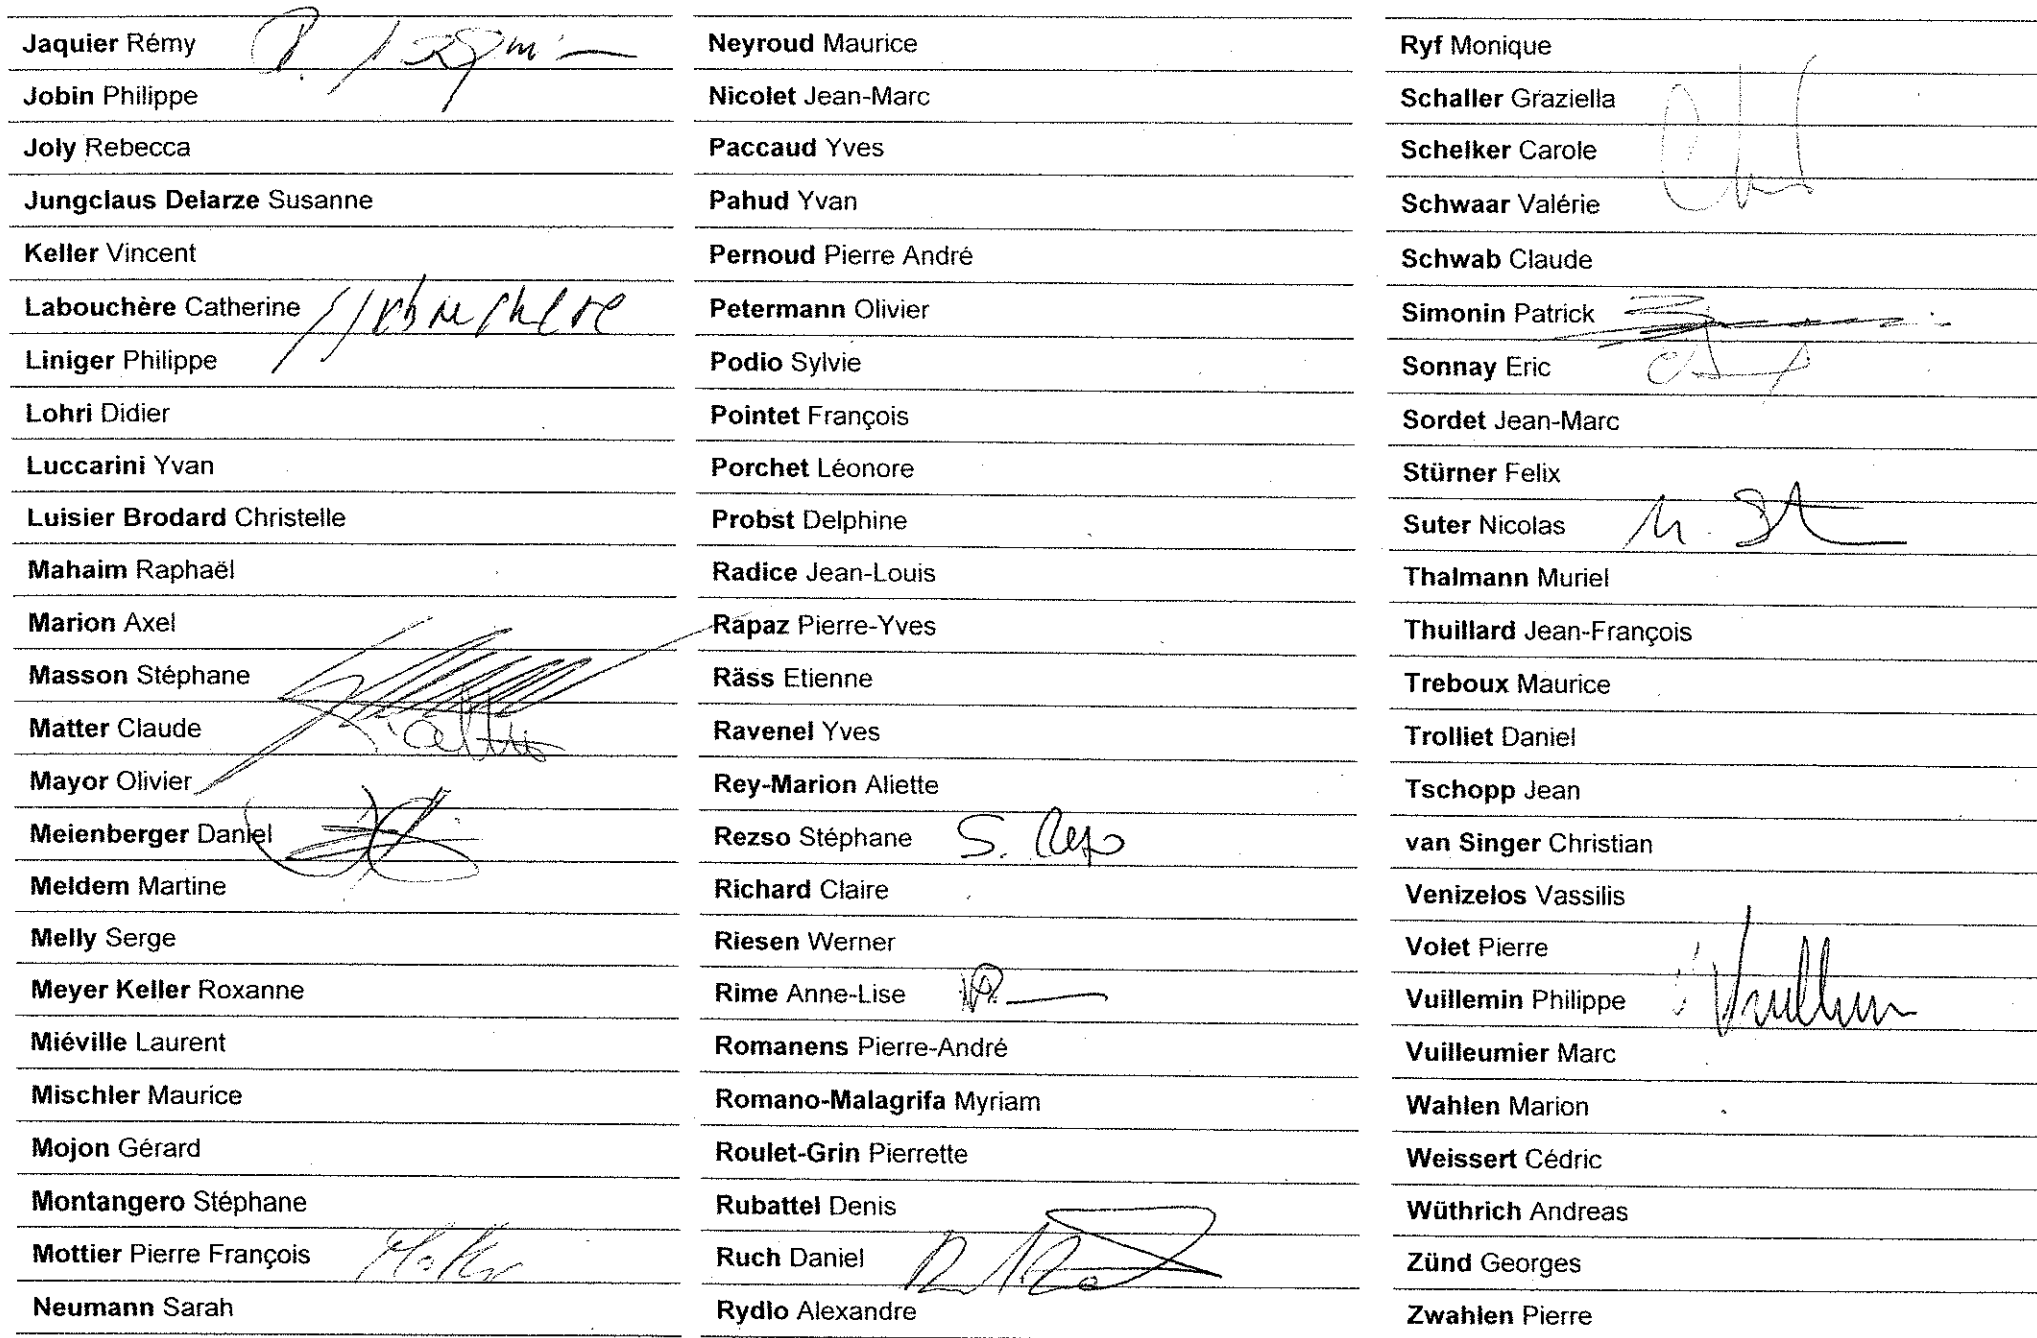 Jaquier Rémy
Jobin Philippe
Joly Rebecca
Jungclaus Delarze Susanne
Keller Vincent
Labouchère Catherine
Liniger Philippe
Lohri Didier
Luccarini Yvan
Luisier Brodard Christelle
Mahaim Raphaël
Marion Axel
Masson Stéphane
Matter Claude
Mayor Olivier
Meienberger Daniel
Meldem Martine
Melly Serge
Meyer Keller Roxanne
Miéville Laurent
Mischler Maurice
Mojon Gérard
Montangero Stéphane
Mottier Pierre François
Neumann Sarah
Neyroud Maurice
Nicolet Jean-Marc
Paccaud Yves
Pahud Yvan
Pernoud Pierre André
Petermann Olivier
Podio Sylvie
Pointet François
Porchet Léonore
Probst Delphine
Radice Jean-Louis
Rapaz Pierre-Yves
Räss Etienne
Ravenel Yves
Rey-Marion Aliette
Rezso Stéphane S. Rezso
Richard Claire
Riesen Werner
Rime Anne-Lise
Romanens Pierre-André
Romano-Malagrifa Myriam
Roulet-Grin Pierrette
Rubattel Denis
Ruch Daniel
Rydlo Alexandre
Ryf Monique
Schaller Graziella
Schelker Carole
Schwaar Valérie
Schwab Claude
Simonin Patrick
Sonnay Eric
Sordet Jean-Marc
Stürner Felix
Suter Nicolas
Thalmann Muriel
Thuillard Jean-François
Treboux Maurice
Trolliet Daniel
Tschopp Jean
van Singer Christian
Venizelos Vassilis
Volet Pierre
Vuillemin Philippe
Vuilleumier Marc
Wahlen Marion
Weissert Cédric
Wüthrich Andreas
Zünd Georges
Zwahlen Pierre